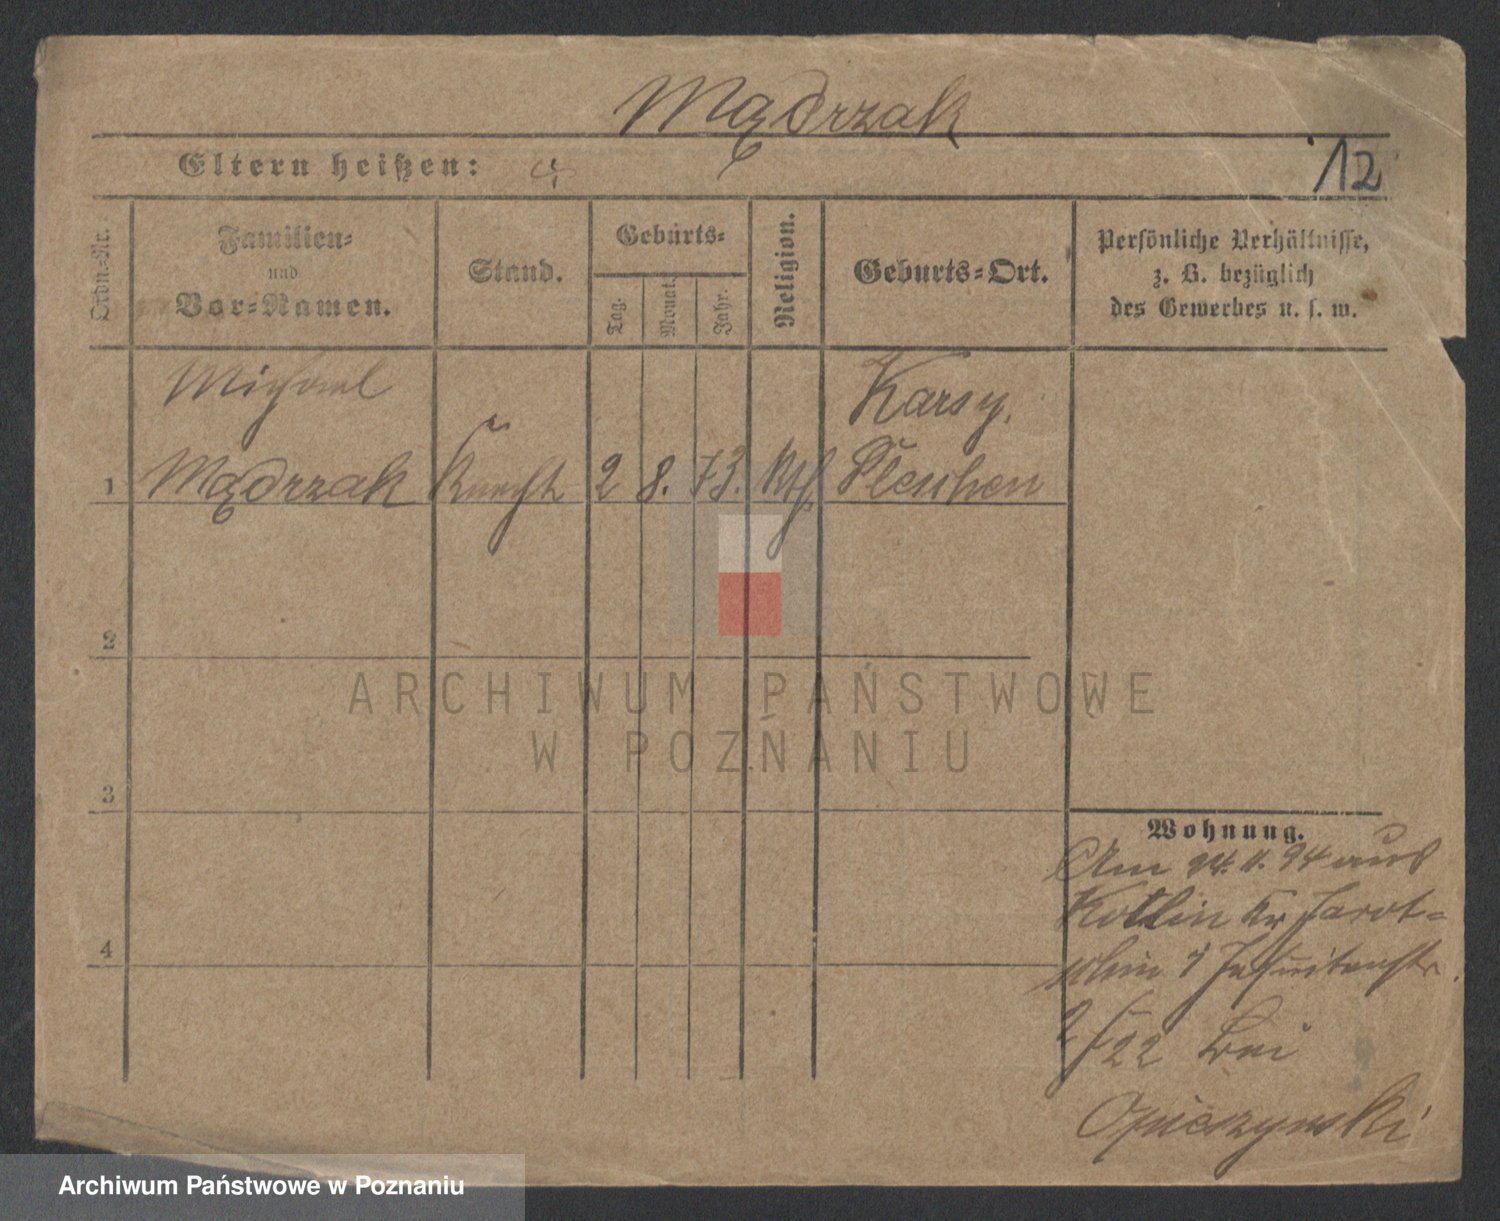 Mądrzak
Eltern heißen:
12
Ordn.-Nr.
Familien-
und
Vor-Namen.
Stand.
Geburts-
Tag.
Monat.
Jahr.
Religion.
Geburts-Ort.
Persönliche Verhältnisse,
z. B. bezüglich
des Gewerbes u. s. w.
Michael
Karsy,
1 Mądrzak Knecht 2 8. 73. Kth. Pleschen
2
ARCHIWUM PAŃSTWOWE
W POZNANIU
3
Wohnung.
Am 24. 11. 94 aus
Kotlin Kr Jarot-
schin Jesuitenstr.
2/22 bei
4
Archiwum Państwowe w Poznaniu